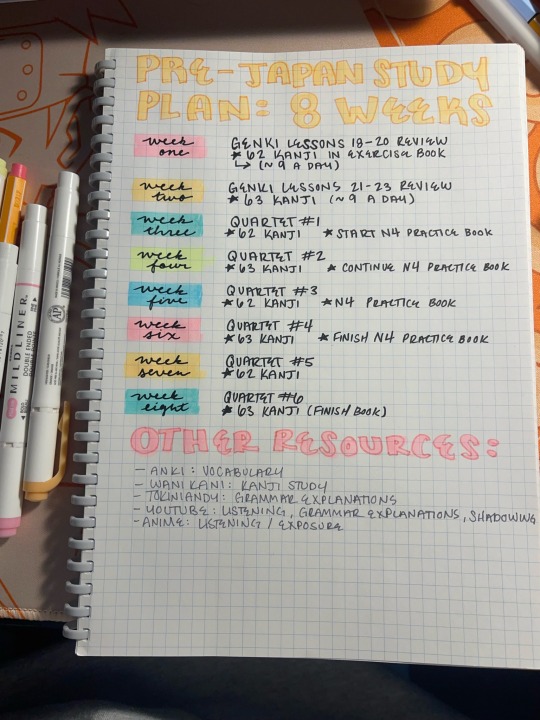 PRE-JAPAN STUDY
PLAN: 8 WEEKS
week one
GENKI LESSONS 18-20 REVIEW
★ 62 KANJI IN EXERCISE BOOK
↳ (~9 A DAY)
week two
GENKI LESSONS 21-23 REVIEW
★ 63 KANJI (~9 A DAY)
week three
QUARTET #1
★ 62 KANJI ★ START N4 PRACTICE BOOK
week four
QUARTET #2
★ 63 KANJI ★ CONTINUE N4 PRACTICE BOOK
week five
QUARTET #3
★ 62 KANJI ★ N4 PRACTICE BOOK
week six
QUARTET #4
★ 63 KANJI ★ FINISH N4 PRACTICE BOOK
week seven
QUARTET #5
★ 62 KANJI
week eight
QUARTET #6
★ 63 KANJI (FINISH BOOK)
OTHER RESOURCES:
- ANKI: VOCABULARY
- WANI KANI: KANJI STUDY
- TOKINIANDY: GRAMMAR EXPLANATIONS
- YOUTUBE: LISTENING, GRAMMAR EXPLANATIONS, SHADOWING
- ANIME: LISTENING / EXPOSURE
MILDLINER
DOUBLE ENDED